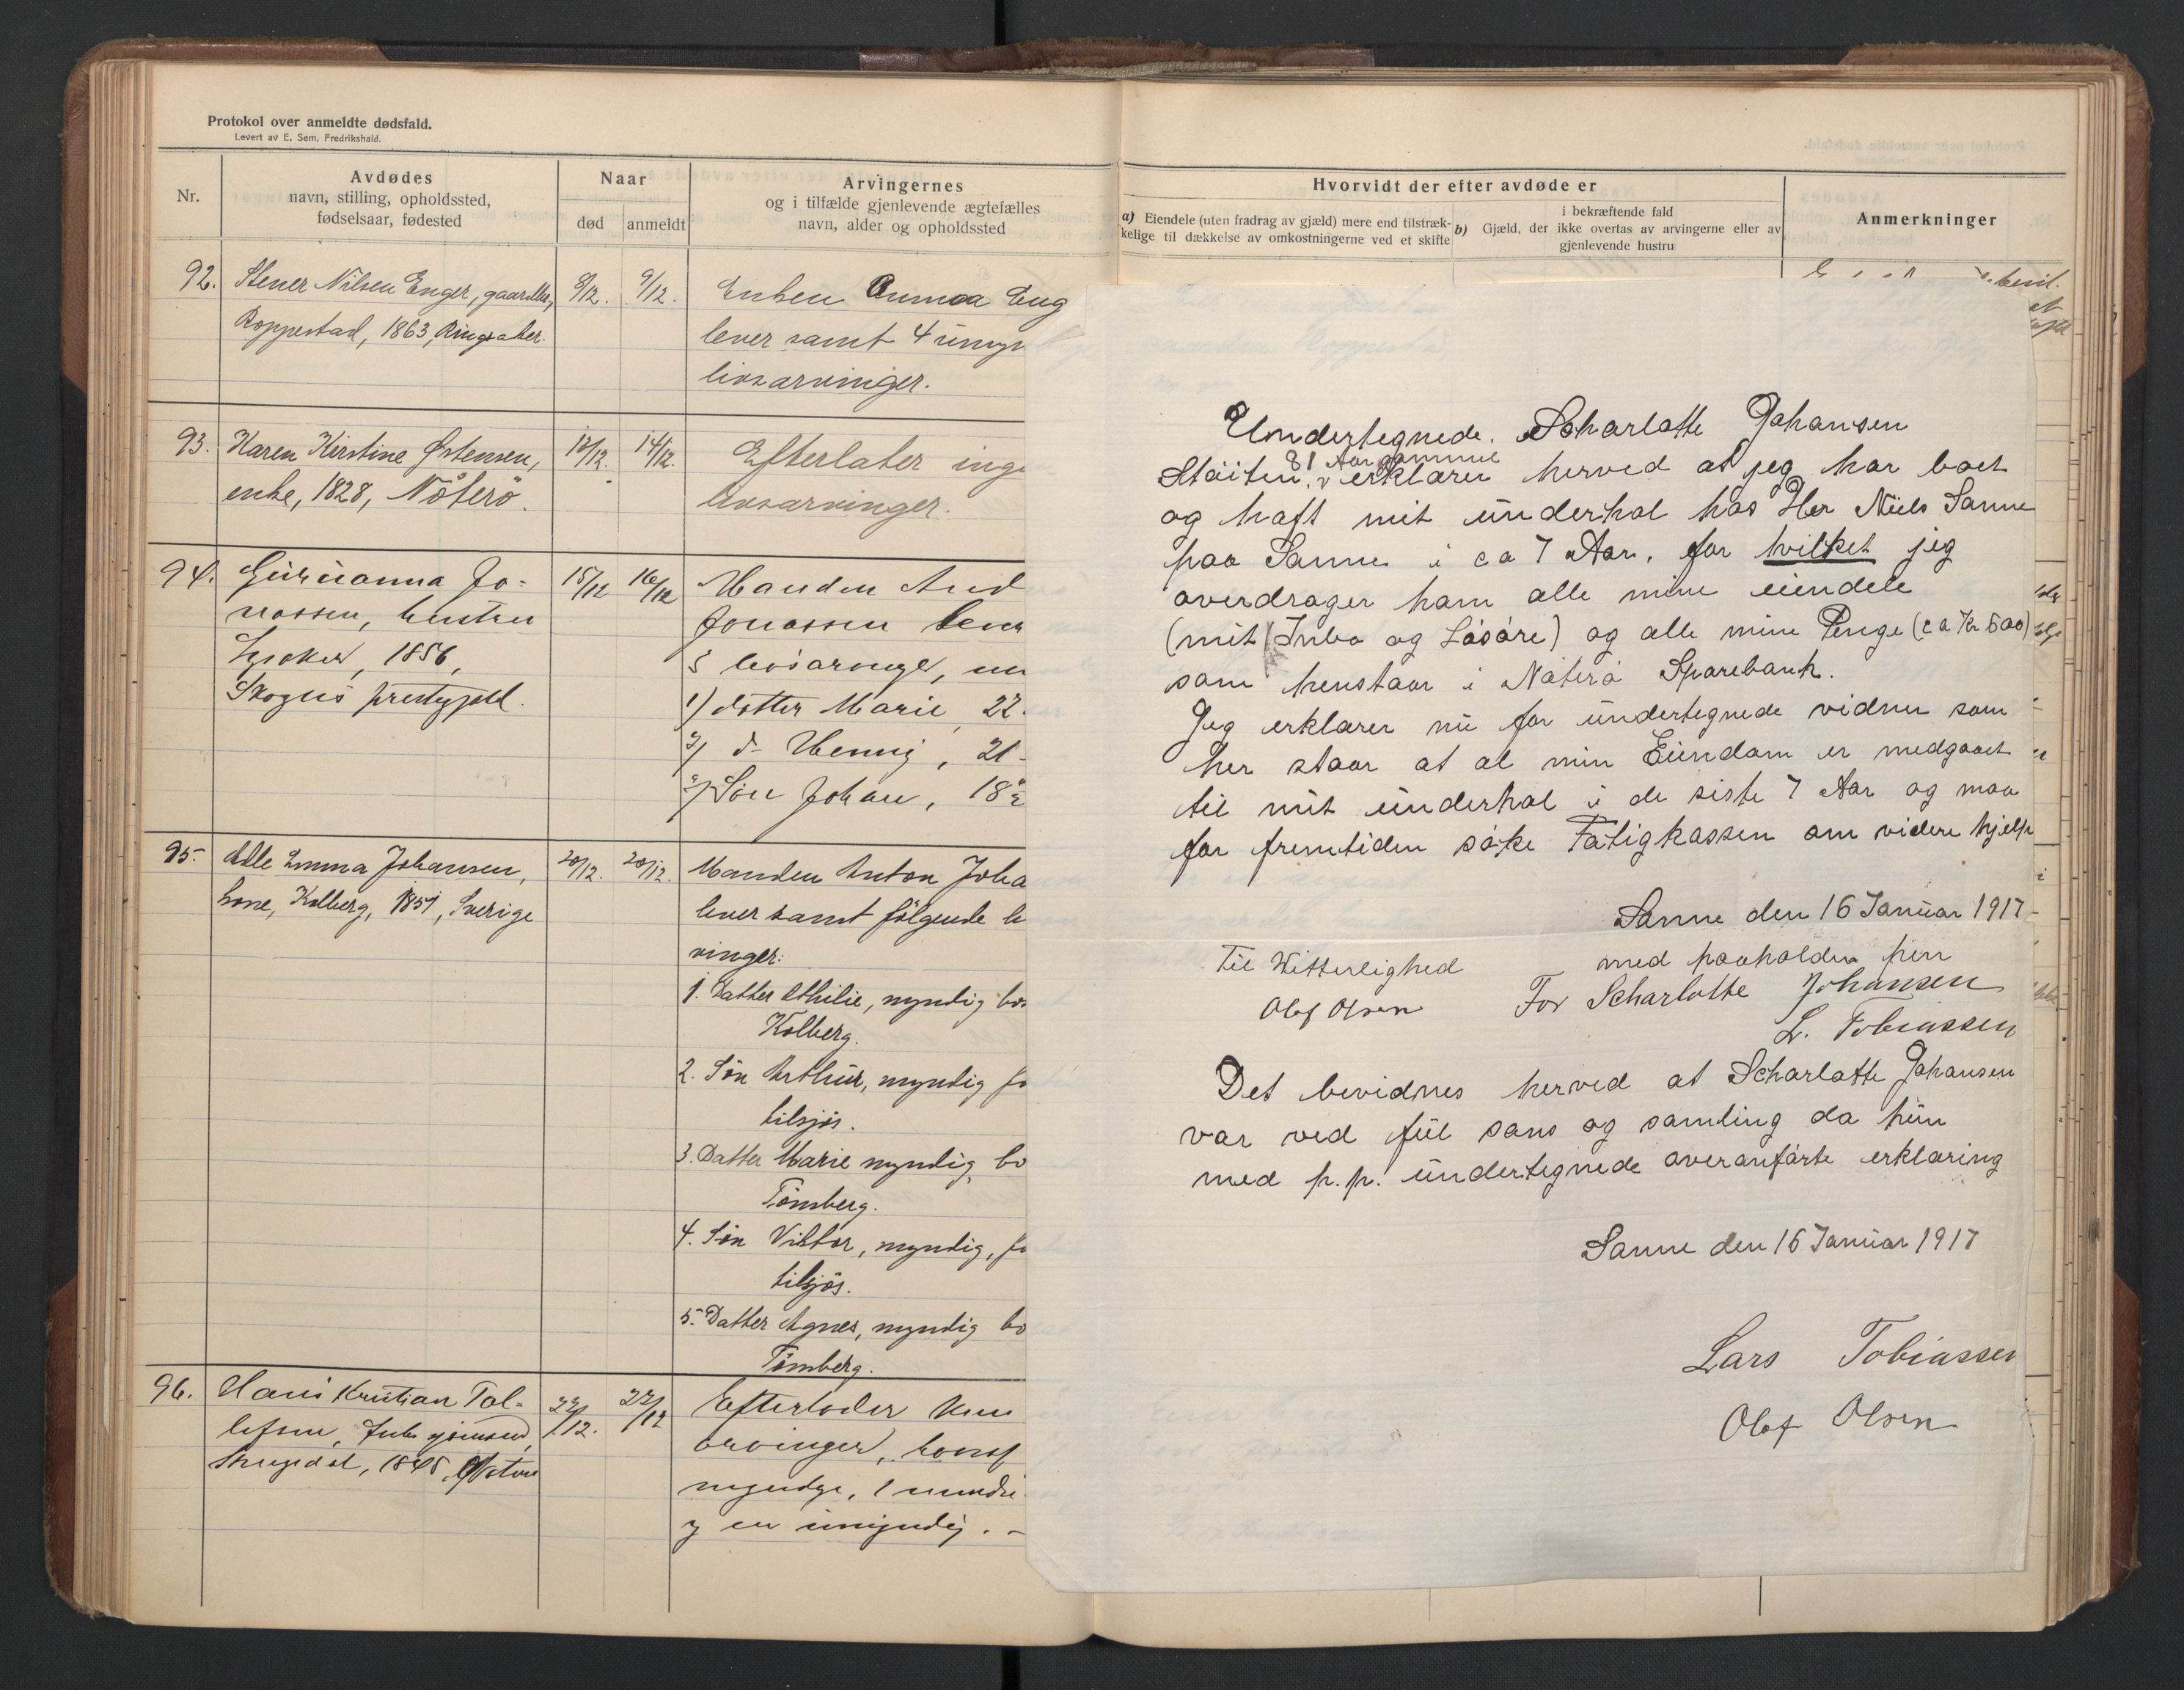 Protokol over anmeldte dødsfald.
Levert av E. Sem, Fredrikshald.
Nr.
Avdødes
navn, stilling, opholdssted,
fødselsaar, fødested
Naar
død
anmeldt
Arvingernes
og i tilfælde gjenlevende ægtefælles
navn, alder og opholdssted
92.
Stener Nilsen Enger,
Roppestad, 1863, Ringsaker.
8/12.
9/12.
Enken Anna Eng
lever samt 4 umyn
livsarvinger.
93.
Karen Kirstine Østensen,
enke, 1828, Nøterø.
13/12.
14/12.
Efterlater inge
livsarvinger.
94.
Gurianna Jo-
nassen, hustru
1856,
Skogns prestegjeld.
15/12
16/12
Manden And
Jonassen lever
3 livsarvinger,
1) datter Marie, 22
2) d- Henny, 21
3) Søn Johan, 18½
95.
Alle Emma Johansen,
kone, Kolberg, 1851, Sverige
20/12.
20/12.
Manden Anton Joha
lever samt følgende li
vinger:
1. Datter Athilie, myndig bo
Kolberg.
2. Søn Arthur, myndig fo
tilsjøs.
3. Datter Marie myndig, bo
Tønsberg.
4. Søn Viktor, myndig, fo
tilsjøs.
5. Datter Agnes, myndig bo
Tønsberg.
96.
Hans Kristian Tol-
lefsen,
1848,
22/12.
22/12
Efterlader kun
arvinger, hvoraf
myndige, 1
og en umyndig. -
Hvorvidt der efter avdøde er
a) Eiendele (uten fradrag av gjæld) mere end tilstræk-
kelige til dækkelse av omkostningerne ved et skifte
b) Gjæld, der
i bekræftende fald
ikke overtas av arvingerne eller av
gjenlevende hustru
Anmerkninger
Undertegnede. Scharlotte Johansen
81 Aar gammel
Støiten, v erklærer herved at jeg har boet
og haft mit underhol hos Her Niels Sanne
paa Sanne i ca 7 Aar, for hvilket jeg
overdrager ham alle mine eiendele
(mit Inbo og Løsøre) og alle mine Penge (ca Kr 500)
som henstaar i Nøterø Sparebank.
Jeg erklærer nu for undertegnede vidner som
her staar at al min Eiendom er medgaaet
til mit underhol i de siste 7 Aar og maa
for fremtiden søke Fatigkassen om videre hjelp
Sanne den 16 Januar 1917
med paaholden pen
Til Vitterlighed
For Scharlotte Johansen
Olof Olsen
L. Tobiassen
Det bevidnes herved at Scharlotte Johansen
var ved ful sans og samling da hun
med p.p. undertegnede overanførte erklæring
Sanne den 16 Januar 1917
Lars Tobiassen
Olof Olsen